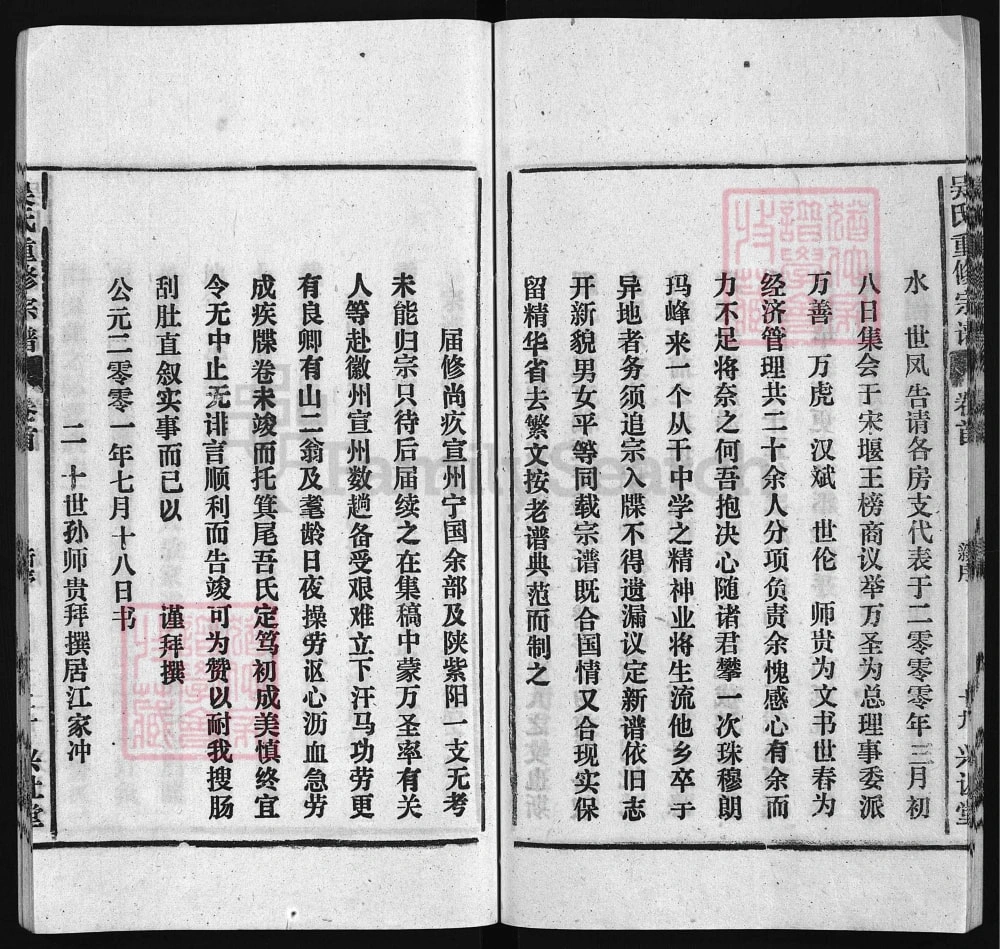 吴氏重修宗谱 卷首 新序 十九
水 世凤告请各房支代表于二零零零年三月初
八日集会于宋堰王榜商议举万圣为总理事委派
万善 万虎 汉斌 世伦 师贵为文书世春为
经济管理共二十余人分项负责余愧感心有余而
力不足将奈之何吾抱决心随诸君攀一次珠穆朗
玛峰来一个从干中学之精神业将生流他乡卒于
异地者务须追宗入牒不得遗漏议定新谱依旧志
开新貌男女平等同载宗谱既合国情又合现实保
留精华省去繁文按老谱典范而制之
届修尚疚宣州宁国余部及陕紫阳一支无考
未能归宗只待后届续之在集稿中蒙万圣率有关
人等赴徽州宣州数趟备受艰难立下汗马功劳更
有良卿有山二翁及耄龄日夜操劳讴心沥血急劳
成疾牒卷未竣而托箕尾吾氏定笃初成美慎终宜
令无中止无诽言顺利而告竣可为赞以耐我搜肠
刮肚直叙实事而已以 谨拜撰
公元二零零一年七月十八日书
二十世孙师贵拜撰居江家冲
吴氏重修宗谱 卷首
FamilySearch